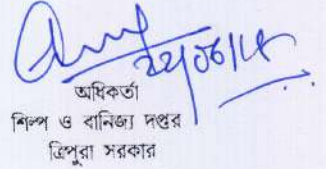 22/06/18
অধিকর্তা
শিল্প ও বানিজ্য দপ্তর
ত্রিপুরা সরকার